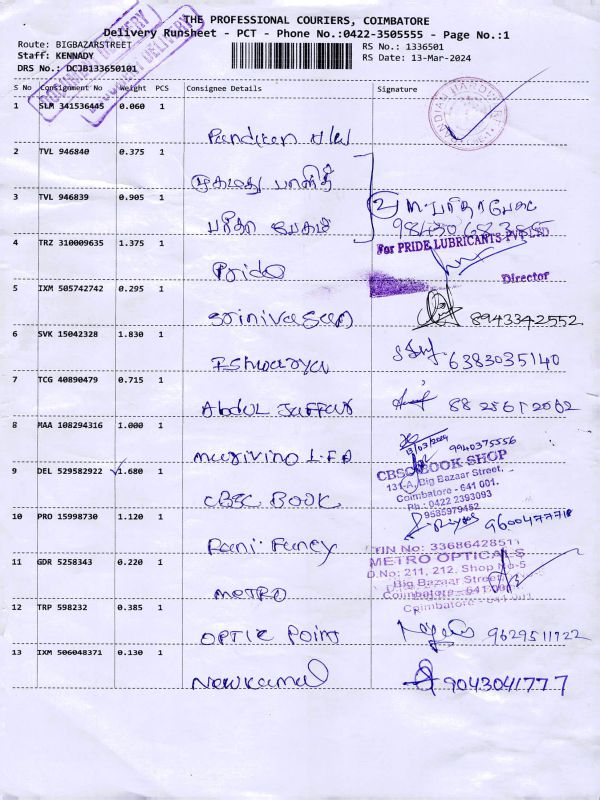 THE PROFESSIONAL COURIERS, COIMBATORE
Delivery Runsheet - PCT - Phone No.:0422-3505555 - Page No.:1
Route: BIGBAZARSTREET
RS No.: 1336501
Staff: KENNADY
RS Date: 13-Mar-2024
DRS No.: DCJB133650101
S No Consignment No Weight PCS Consignee Details Signature
1 SLM 341536445 0.060 1
Pandiyan H/W
2 TVL 946840 0.375 1
முகமது பாஸித்
3 TVL 946839 0.905 1
2 M.பரிதா பேகம்
பரிதா பேகம்
For PRIDE LUBRICANTS PVT LTD
4 TRZ 310009635 1.375 1
Pride
Director
5 IXM 505742742 0.295 1
Srinivasan
8943342552
6 SVK 15042328 1.830 1
Eshwarya
6383035140
7 TCG 40890479 0.715 1
Abdul Jaffar
8 MAA 108294316 1.000 1
13/03/2024 9940375556
CBSC BOOK SHOP
9 DEL 529582922 1.680 1
131-A, Big Bazaar Street,
Coimbatore - 641 001.
Ph.: 0422 2393093
9585979452
CBSC BOOK
10 PRO 15998730 1.120 1
9600477718
Rani Fancy
TIN No: 33686428511
METRO OPTICALS
11 GDR 5258343 0.220 1
D.No: 211, 212, Shop No-5
Big Bazaar Street
Coimbatore - 641 001
METRO
12 TRP 598232 0.385 1
OPTIC POINT
9629511922
13 IXM 506048371 0.130 1
New Kamal
9043041777